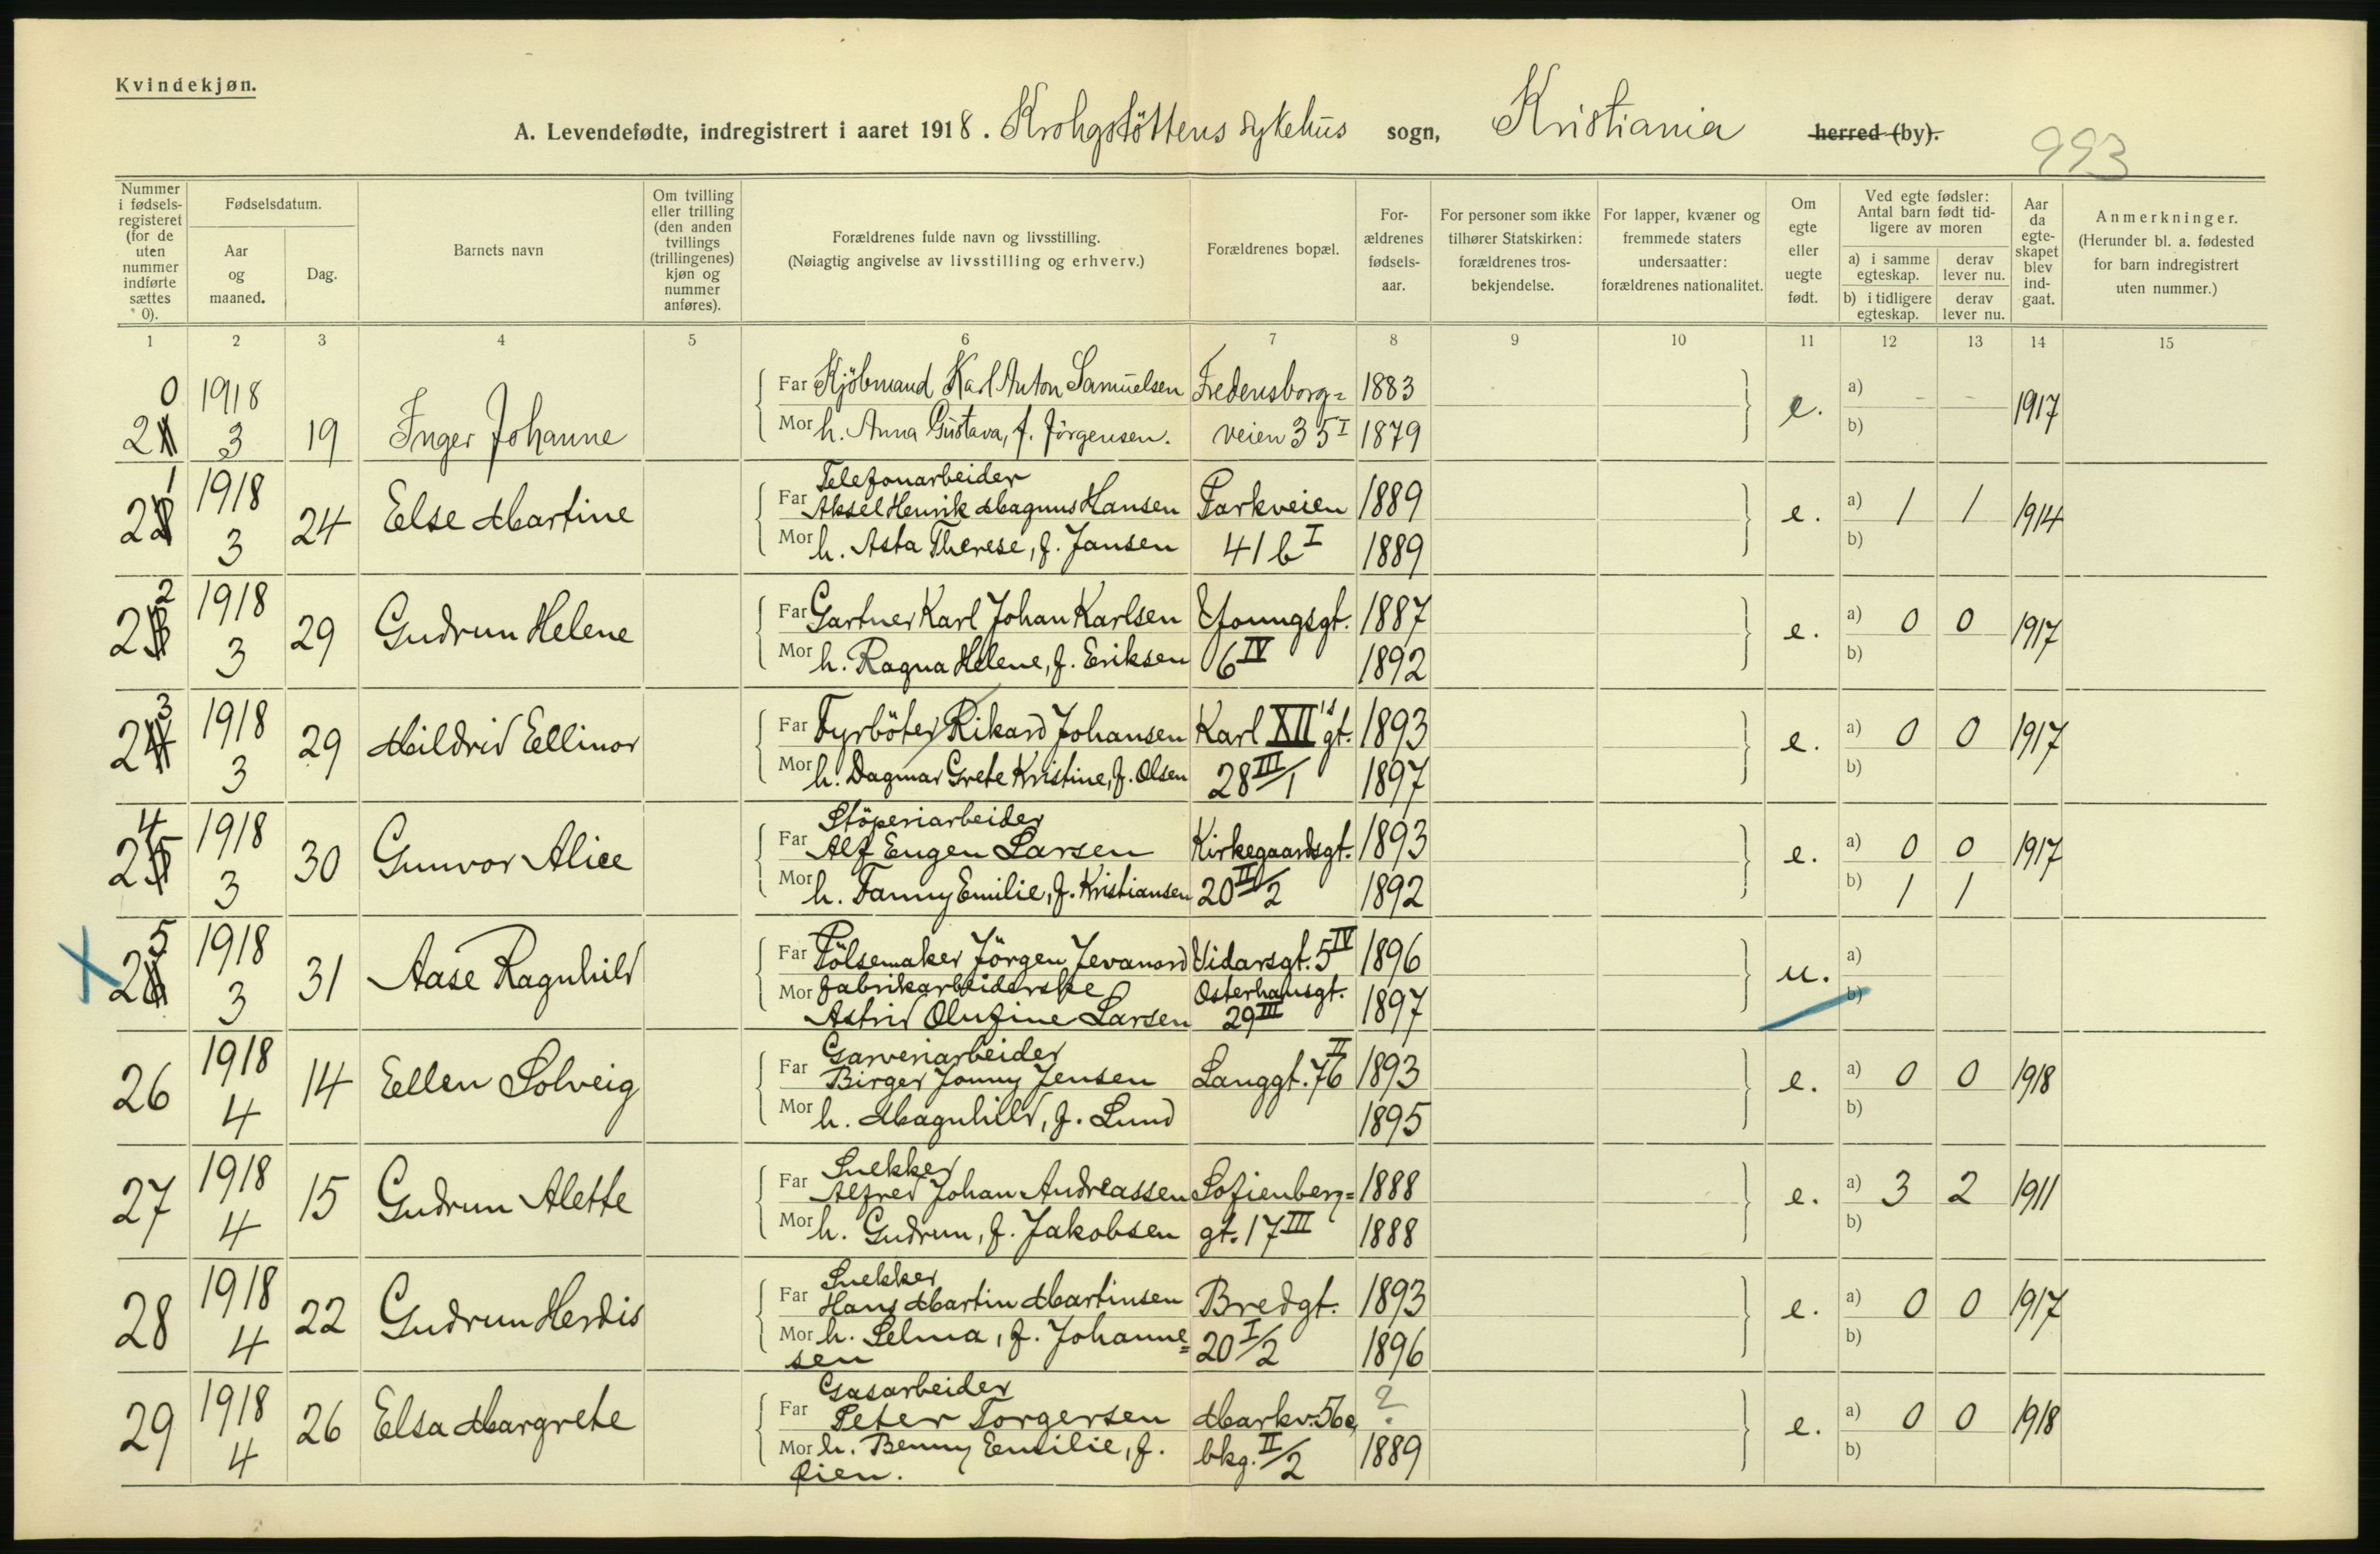 Kvindekjøn.
A. Levendefødte, indregistrert i aaret 1918. Krohgstöttens sykehus sogn, Kristiania herred (by).
993
Nummer i fødsels-registeret (for de uten nummer indførte sættes 0).
Fødselsdatum.
Aar og maaned.
Dag.
Barnets navn
Om tvilling eller trilling (den anden tvillings (trillingenes) kjøn og nummer anføres).
Forældrenes fulde navn og livsstilling.
(Nøiagtig angivelse av livsstilling og erhverv.)
Forældrenes bopæl.
For-ældrenes fødsels-aar.
For personer som ikke tilhører Statskirken: forældrenes tros-bekjendelse.
For lapper, kvæner og fremmede staters undersaatter: forældrenes nationalitet.
Om egte eller uegte født.
Ved egte fødsler: Antal barn født tid-ligere av moren
a) i samme egteskap. derav lever nu.
b) i tidligere egteskap. derav lever nu.
Aar da egte-skapet blev ind-gaat.
Anmerkninger.
(Herunder bl. a. fødested for barn indregistrert uten nummer.)
1 2 3 4 5 6 7 8 9 10 11 12 13 14 15
20 1918 3 19 Inger Johanne
Far Kjöbmand Karl Anton Samuelsen Fredensborg= 1883 e. a) - - 1917
Mor h. Anna Gustava, f. Jörgensen. veien 35 I 1879 b)
21 1918 3 24 Else Martine
Telefonarbeider
Far Aksel Henrik Magnus Hansen Parkveien 1889 e. a) 1 1 1914
Mor h. Asta Therese, f. Jansen 41 b I 1889 b)
22 1918 3 29 Gudrun Helene
Far Gartner Karl Johan Karlsen Youngsgt. 1887 e. a) 0 0 1917
Mor h. Ragna Helene, f. Eriksen 6 IV 1892 b)
23 1918 3 29 Mildrid Ellinor
Far Fyrböter Rikard Johansen Karl XII's gt. 1893 e. a) 0 0 1917
Mor h. Dagmar Grete Kristine, f. Olsen 28 III/1 1897 b)
24 1918 3 30 Gunvor Alice
Stöperiarbeider
Far Alf Eugen Larsen Kirkegaardsgt. 1893 e. a) 0 0 1917
Mor h. Fanny Emilie, f. Kristiansen 20 II/2 1892 b) 1 1
25 1918 3 31 Aase Ragnhild
Far Pölsemaker Jörgen Jevanord Vidarsgt. 5 IV 1896 u. a)
Mor Fabrikarbeiderske Osterhausgt. b)
Astrid Olufine Larsen 29 III 1897
26 1918 4 14 Ellen Solveig
Garveriarbeider
Far Birger Jonny Jensen Langgt. 76 II 1893 e. a) 0 0 1918
Mor h. Magnhild, f. Lund 1895 b)
27 1918 4 15 Gudrun Alette
Snekker
Far Alfred Johan Andreassen Sofienberg= 1888 e. a) 3 2 1911
Mor h. Gudrun, f. Jakobsen gt. 17 III 1888 b)
28 1918 4 22 Gudrun Herdis
Snekker
Far Hans Martin Martinsen Bredgt. 1893 e. a) 0 0 1917
Mor h. Selma, f. Johanne= 20 I/2 1896 b)
sen
29 1918 4 26 Elsa Margrete
Gasarbeider
Far Peter Torgersen Markv. 56 e ? e. a) 0 0 1918
Mor h. Benny Emilie, f. bkg. II/2 1889 b)
Öien.